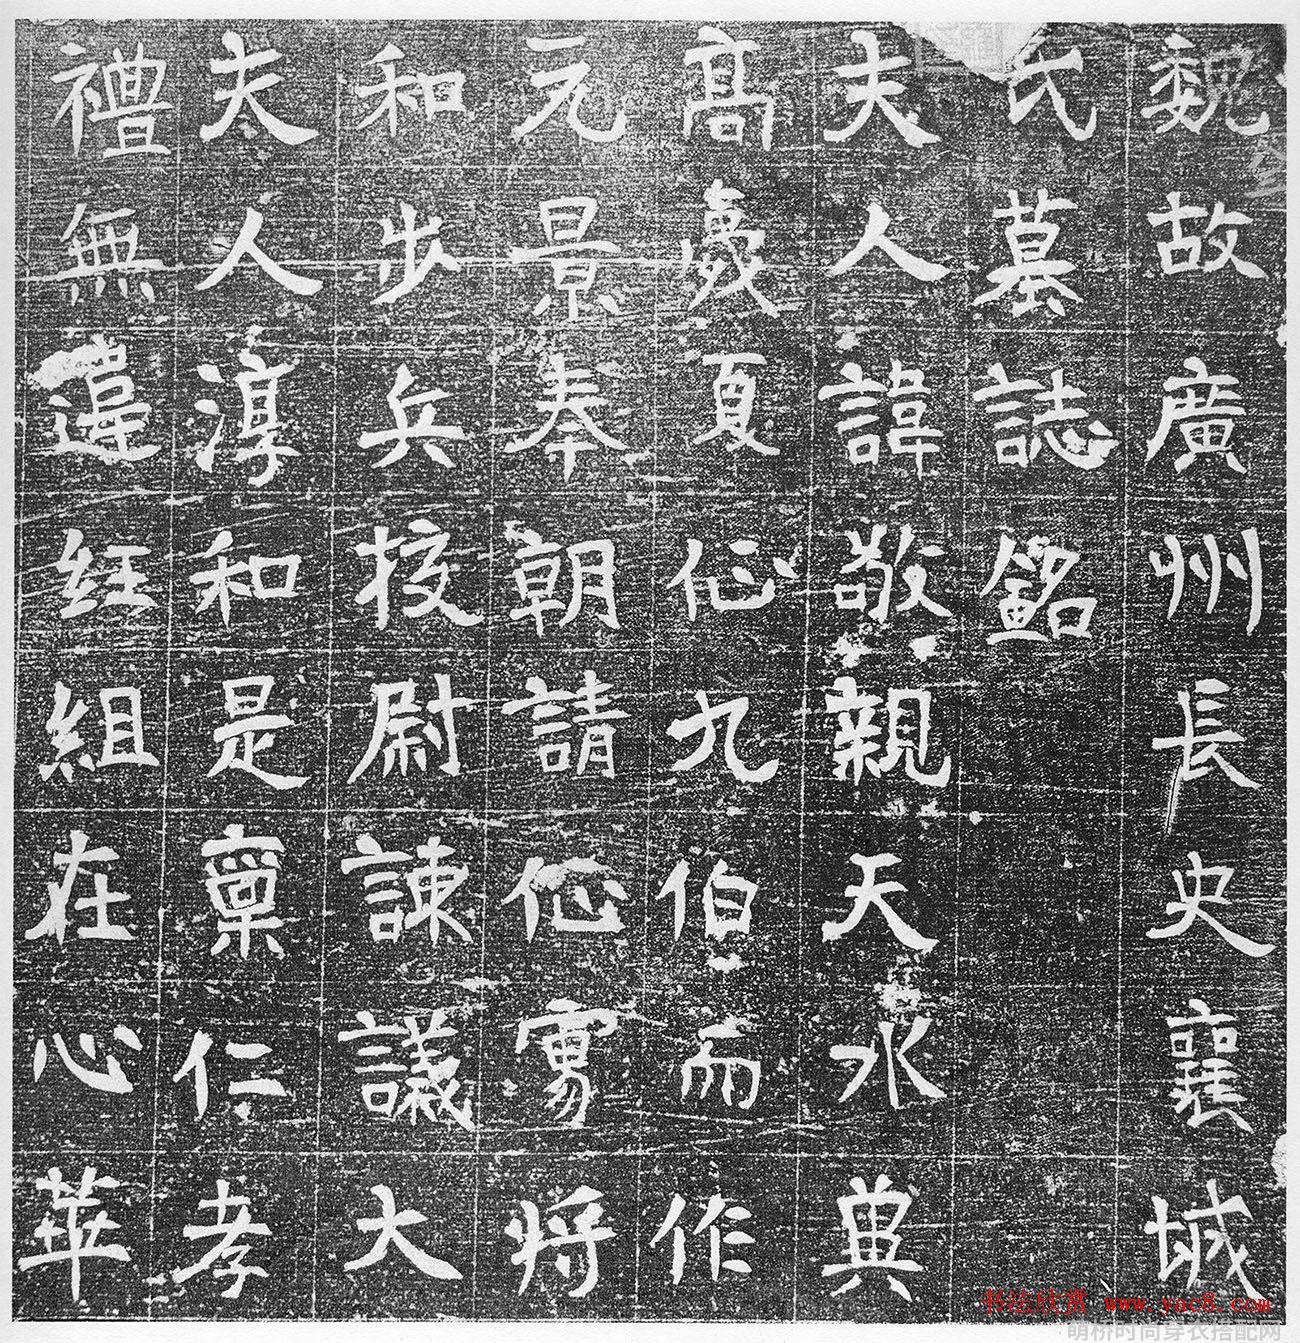 魏故廣州長史襄城
氏墓誌銘
夫人諱敬親天水兾
高夏伈九伯而作
元景奉朝請伈將
和步兵校尉諫議大
夫人淳和是稟仁孝
禮無違紝組在心華
书法欣赏 www.yac8.com
萌桥时尚穿衣搭配网